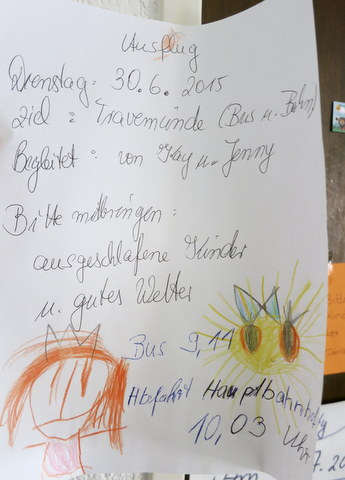 Ausflug
Dienstag: 30.6.2015
Ziel: Travemünde (Bus u. Bahn)
Begleitet: von Kay u. Jenny
Bitte mitbringen:
ausgeschlafene Kinder
u. gutes Wetter
Bus 9,11
Abfahrt Hauptbahnhof
10,03 Uhr